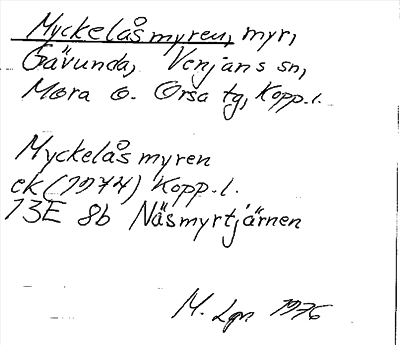 Myckelåsmyren, myr,
Gävunda, Venjans sn,
Mora o. Orsa tg, Kopp. l.
Myckelåsmyren
ek (1974) Kopp. l.
13E 8b Näsmyrtjärnen
M. Lgn 1976